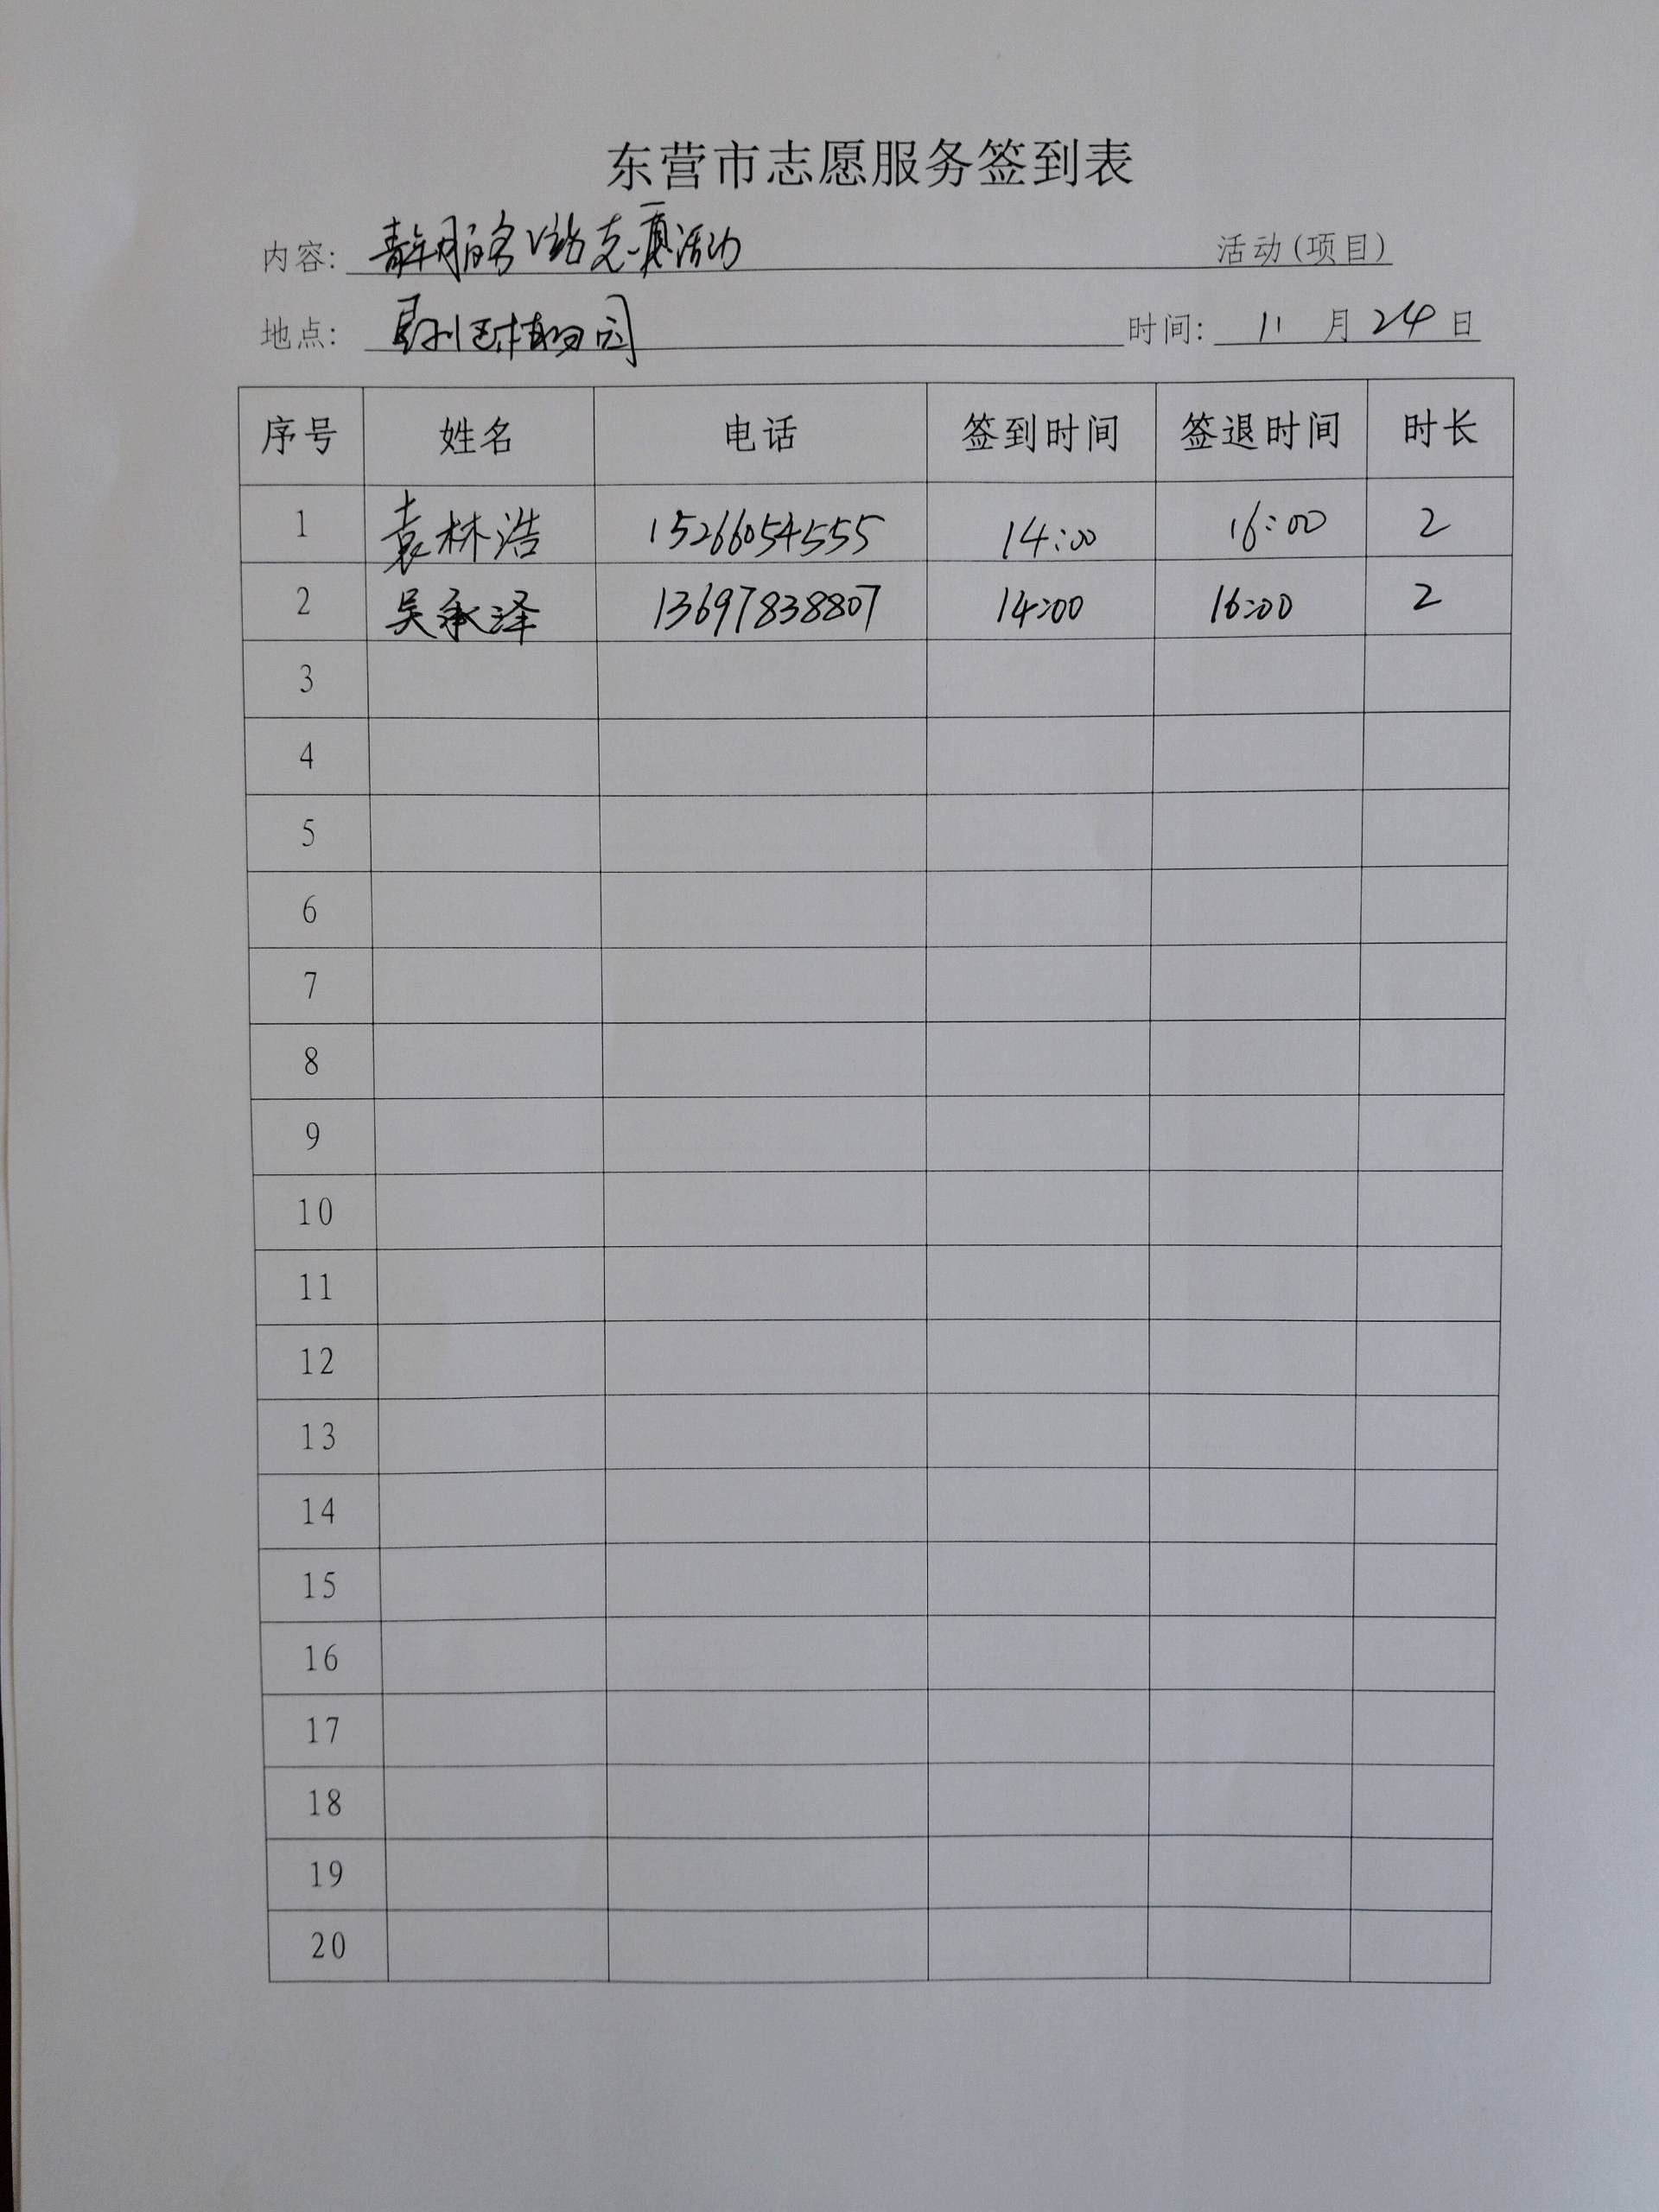 东营市志愿服务签到表
内容: 志愿活动 活动(项目)
地点: 植物园 时间: 11 月 24 日
序号 姓名 电话 签到时间 签退时间 时长
1 袁林浩 15266054555 14:00 16:00 2
2 吴承泽 13697838807 14:00 16:00 2
3
4
5
6
7
8
9
10
11
12
13
14
15
16
17
18
19
20